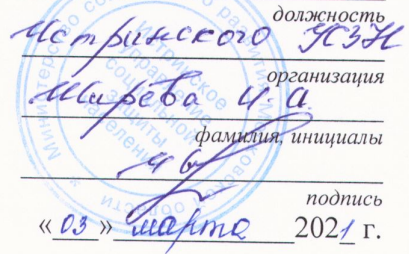 должность
Истринского УСЗН
организация
Шарёва И.А.
фамилия, инициалы
подпись
«03» марта 2021 г.